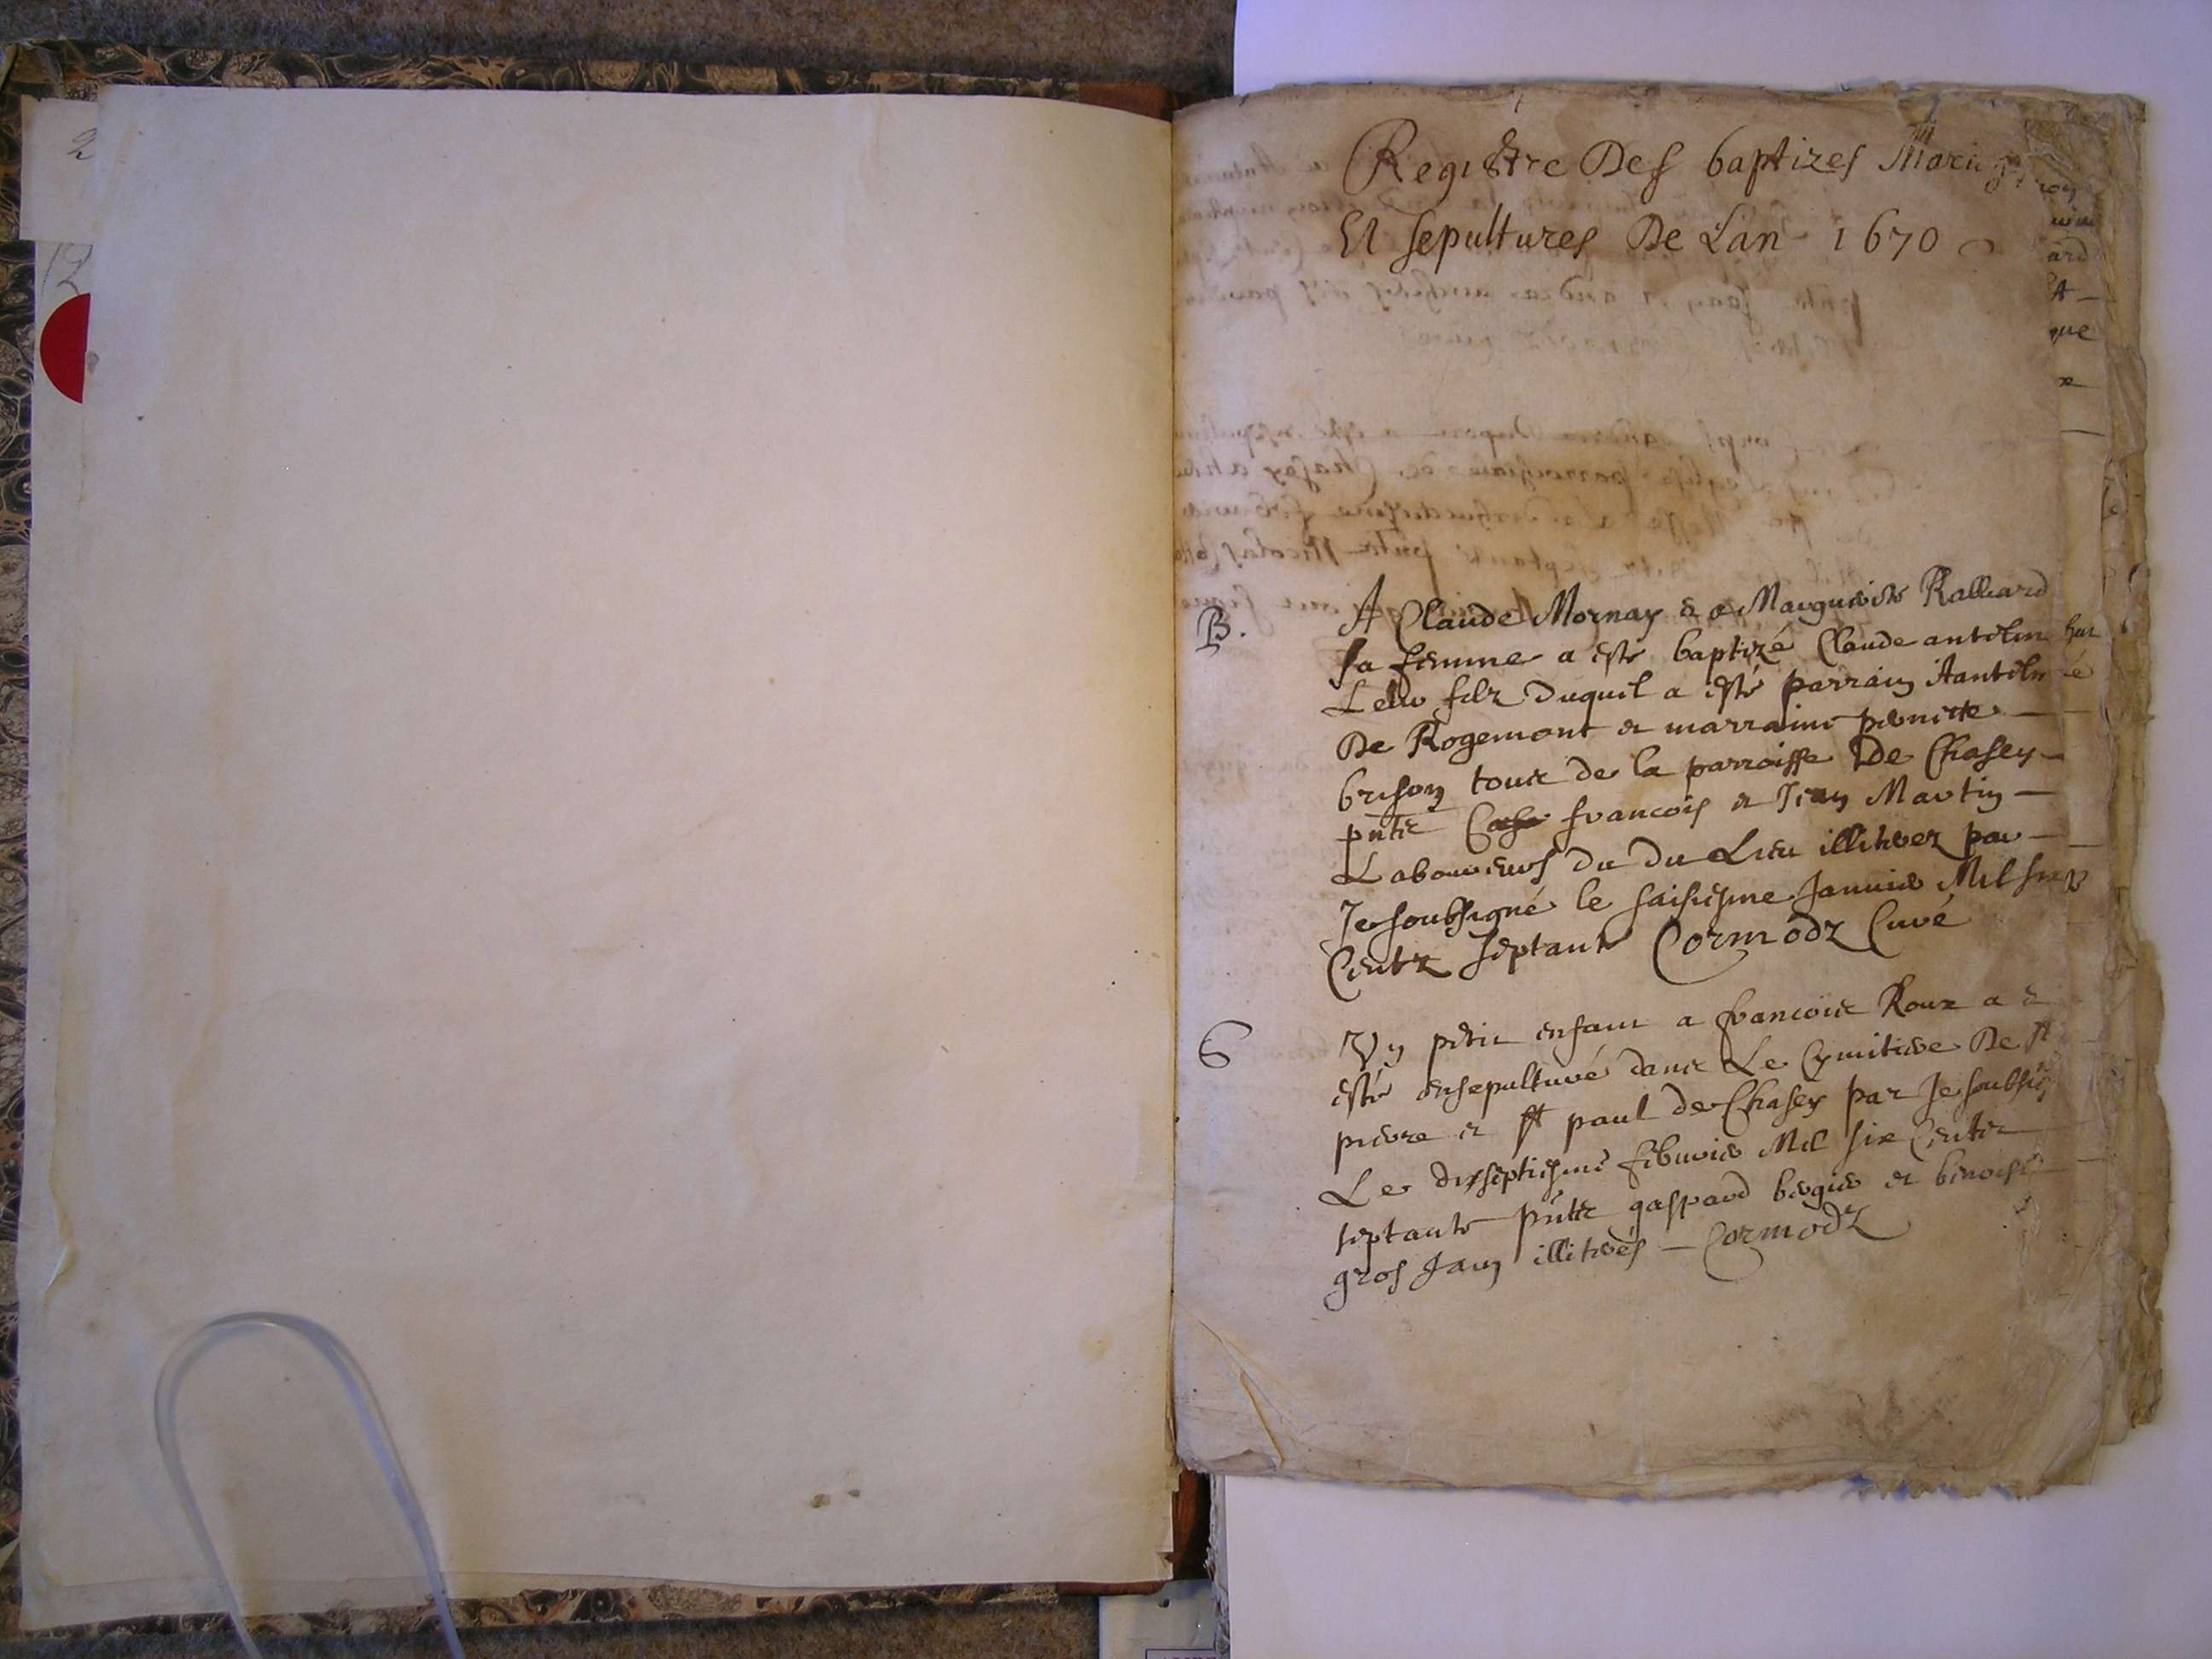 2
12
Registre Des baptizes Mariag
Et sepultures De Lan 1670
B.
A Claude Mornay & a Marguerite Ralliard
sa femme a esté baptizé Claude antelm
Leur filz duquel a esté parrain Aantelm
De Rogemont et marraine pernette
brison touts de la parroisse De Chasey
pnts francois et Jean Martin
Laboureurs du du Lieu illiterez par
Je soubsigné le saisiesme Januier Mil six
Centz septante Cormodz Curé
S
Vn petit enfant a francois Roux a
esté ensepulturé dans Le Cymitiere De st
pierre et st paul de Chasey par Je soubsig
Le dixseptiesme feburier Mil six Cents
septante pnts gaspard bergier et benoist
gros Jean illiterés Cormodz
ard
que